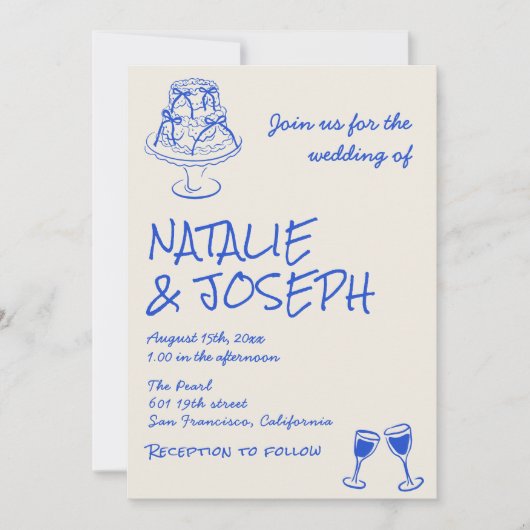 Join us for the
wedding of
NATALIE
& JOSEPH
August 15th, 20xx
1.00 in the afternoon
The Pearl
601 19th street
San Francisco, California
RECEPTION TO FOLLOW